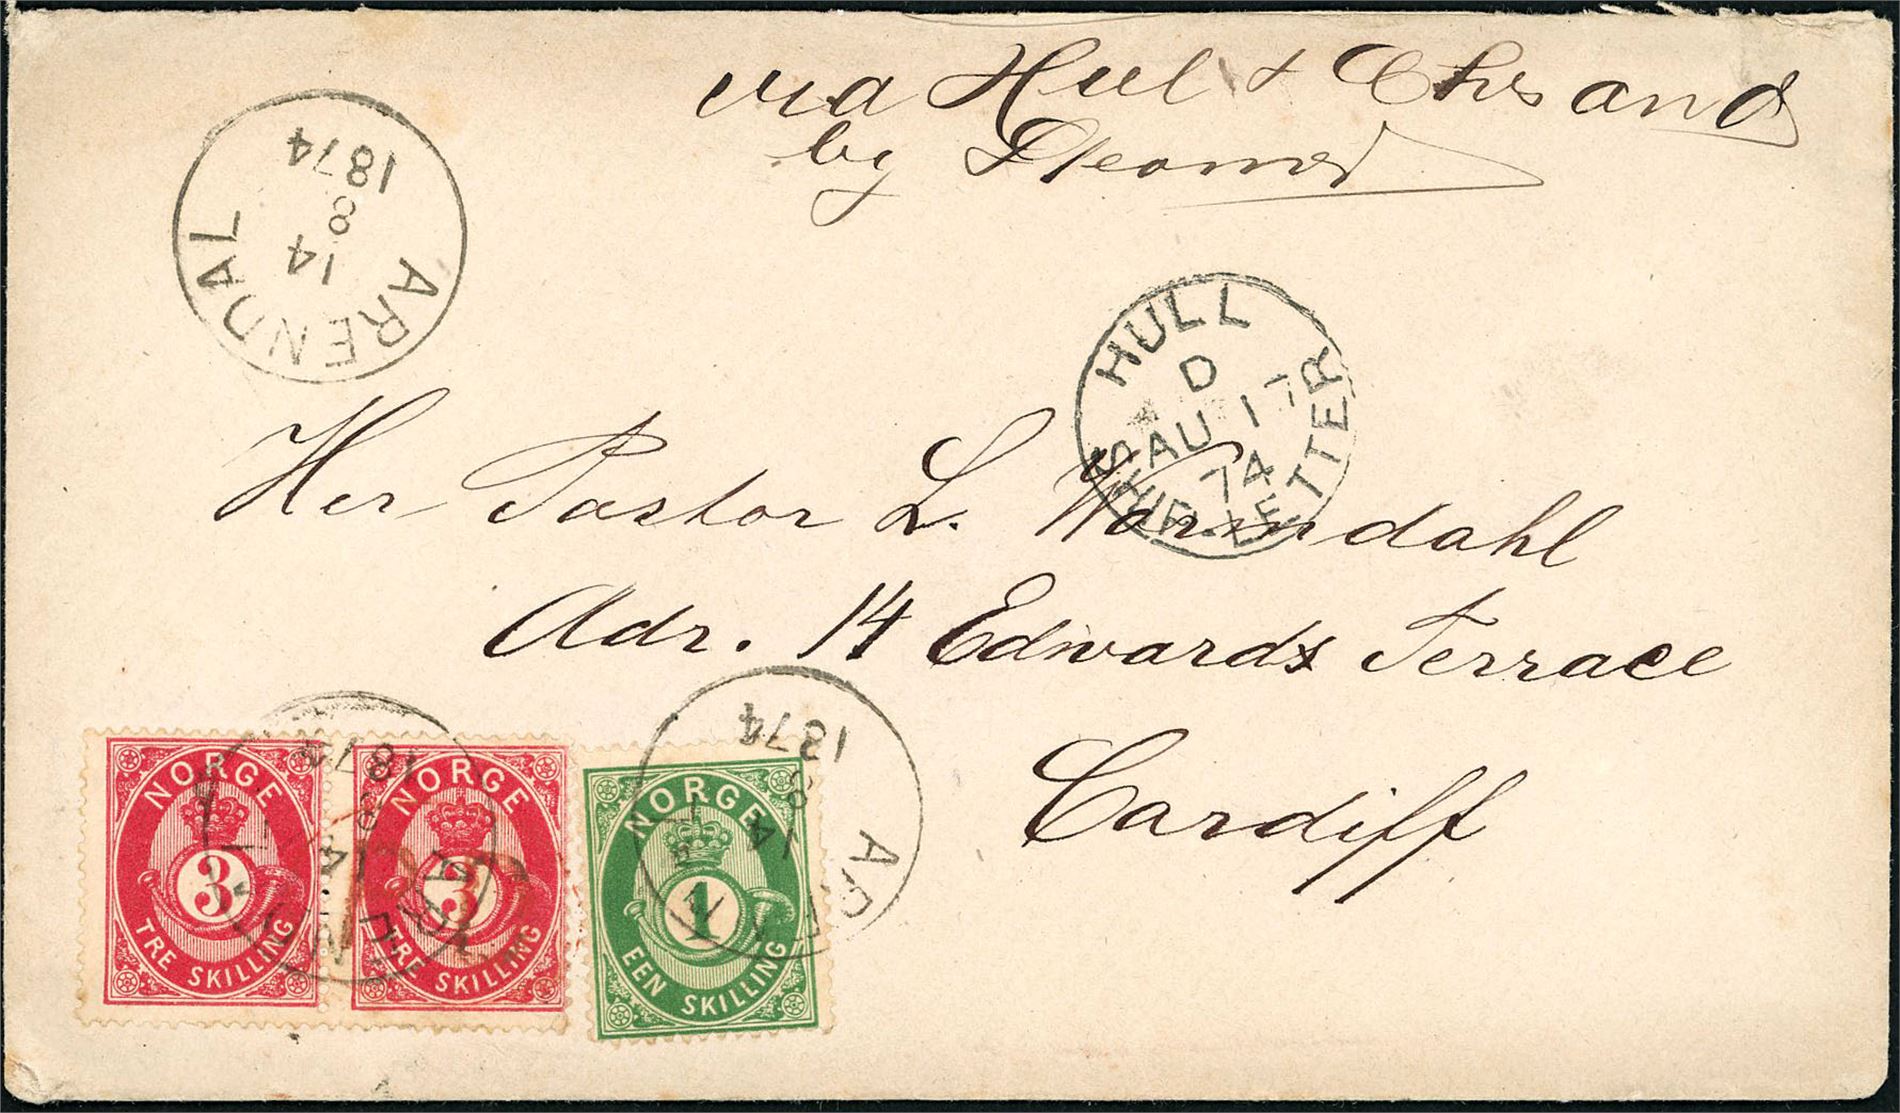 via Hul & Chrsand
by Steamer
ARENDAL
14
8
1874
HULL
D
AU 17
74
SHIP-LETTER
Her Pastor L. Wormdahl
Adr. 14 Edwards Terrace
Cardiff
NORGE
3
TRE SKILLING
NORGE
3
TRE SKILLING
NORGE
1
EEN SKILLING
ARENDAL
14
8
1874
14
8
1874